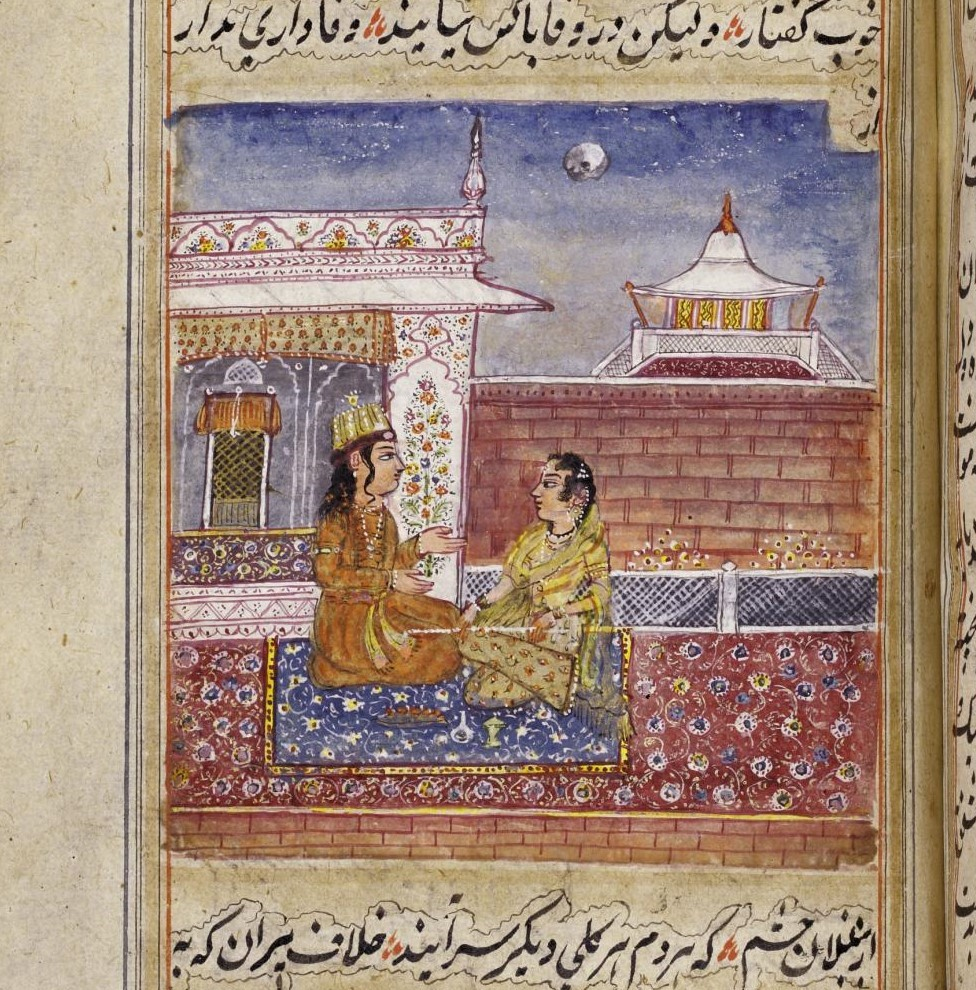 خوب کفتار ولیکن در وفا با کس نپایند وفاداری مدار
از
از بلبلان چشم که هردم بر کلی دیکر سرآیند خلاف پیران که به